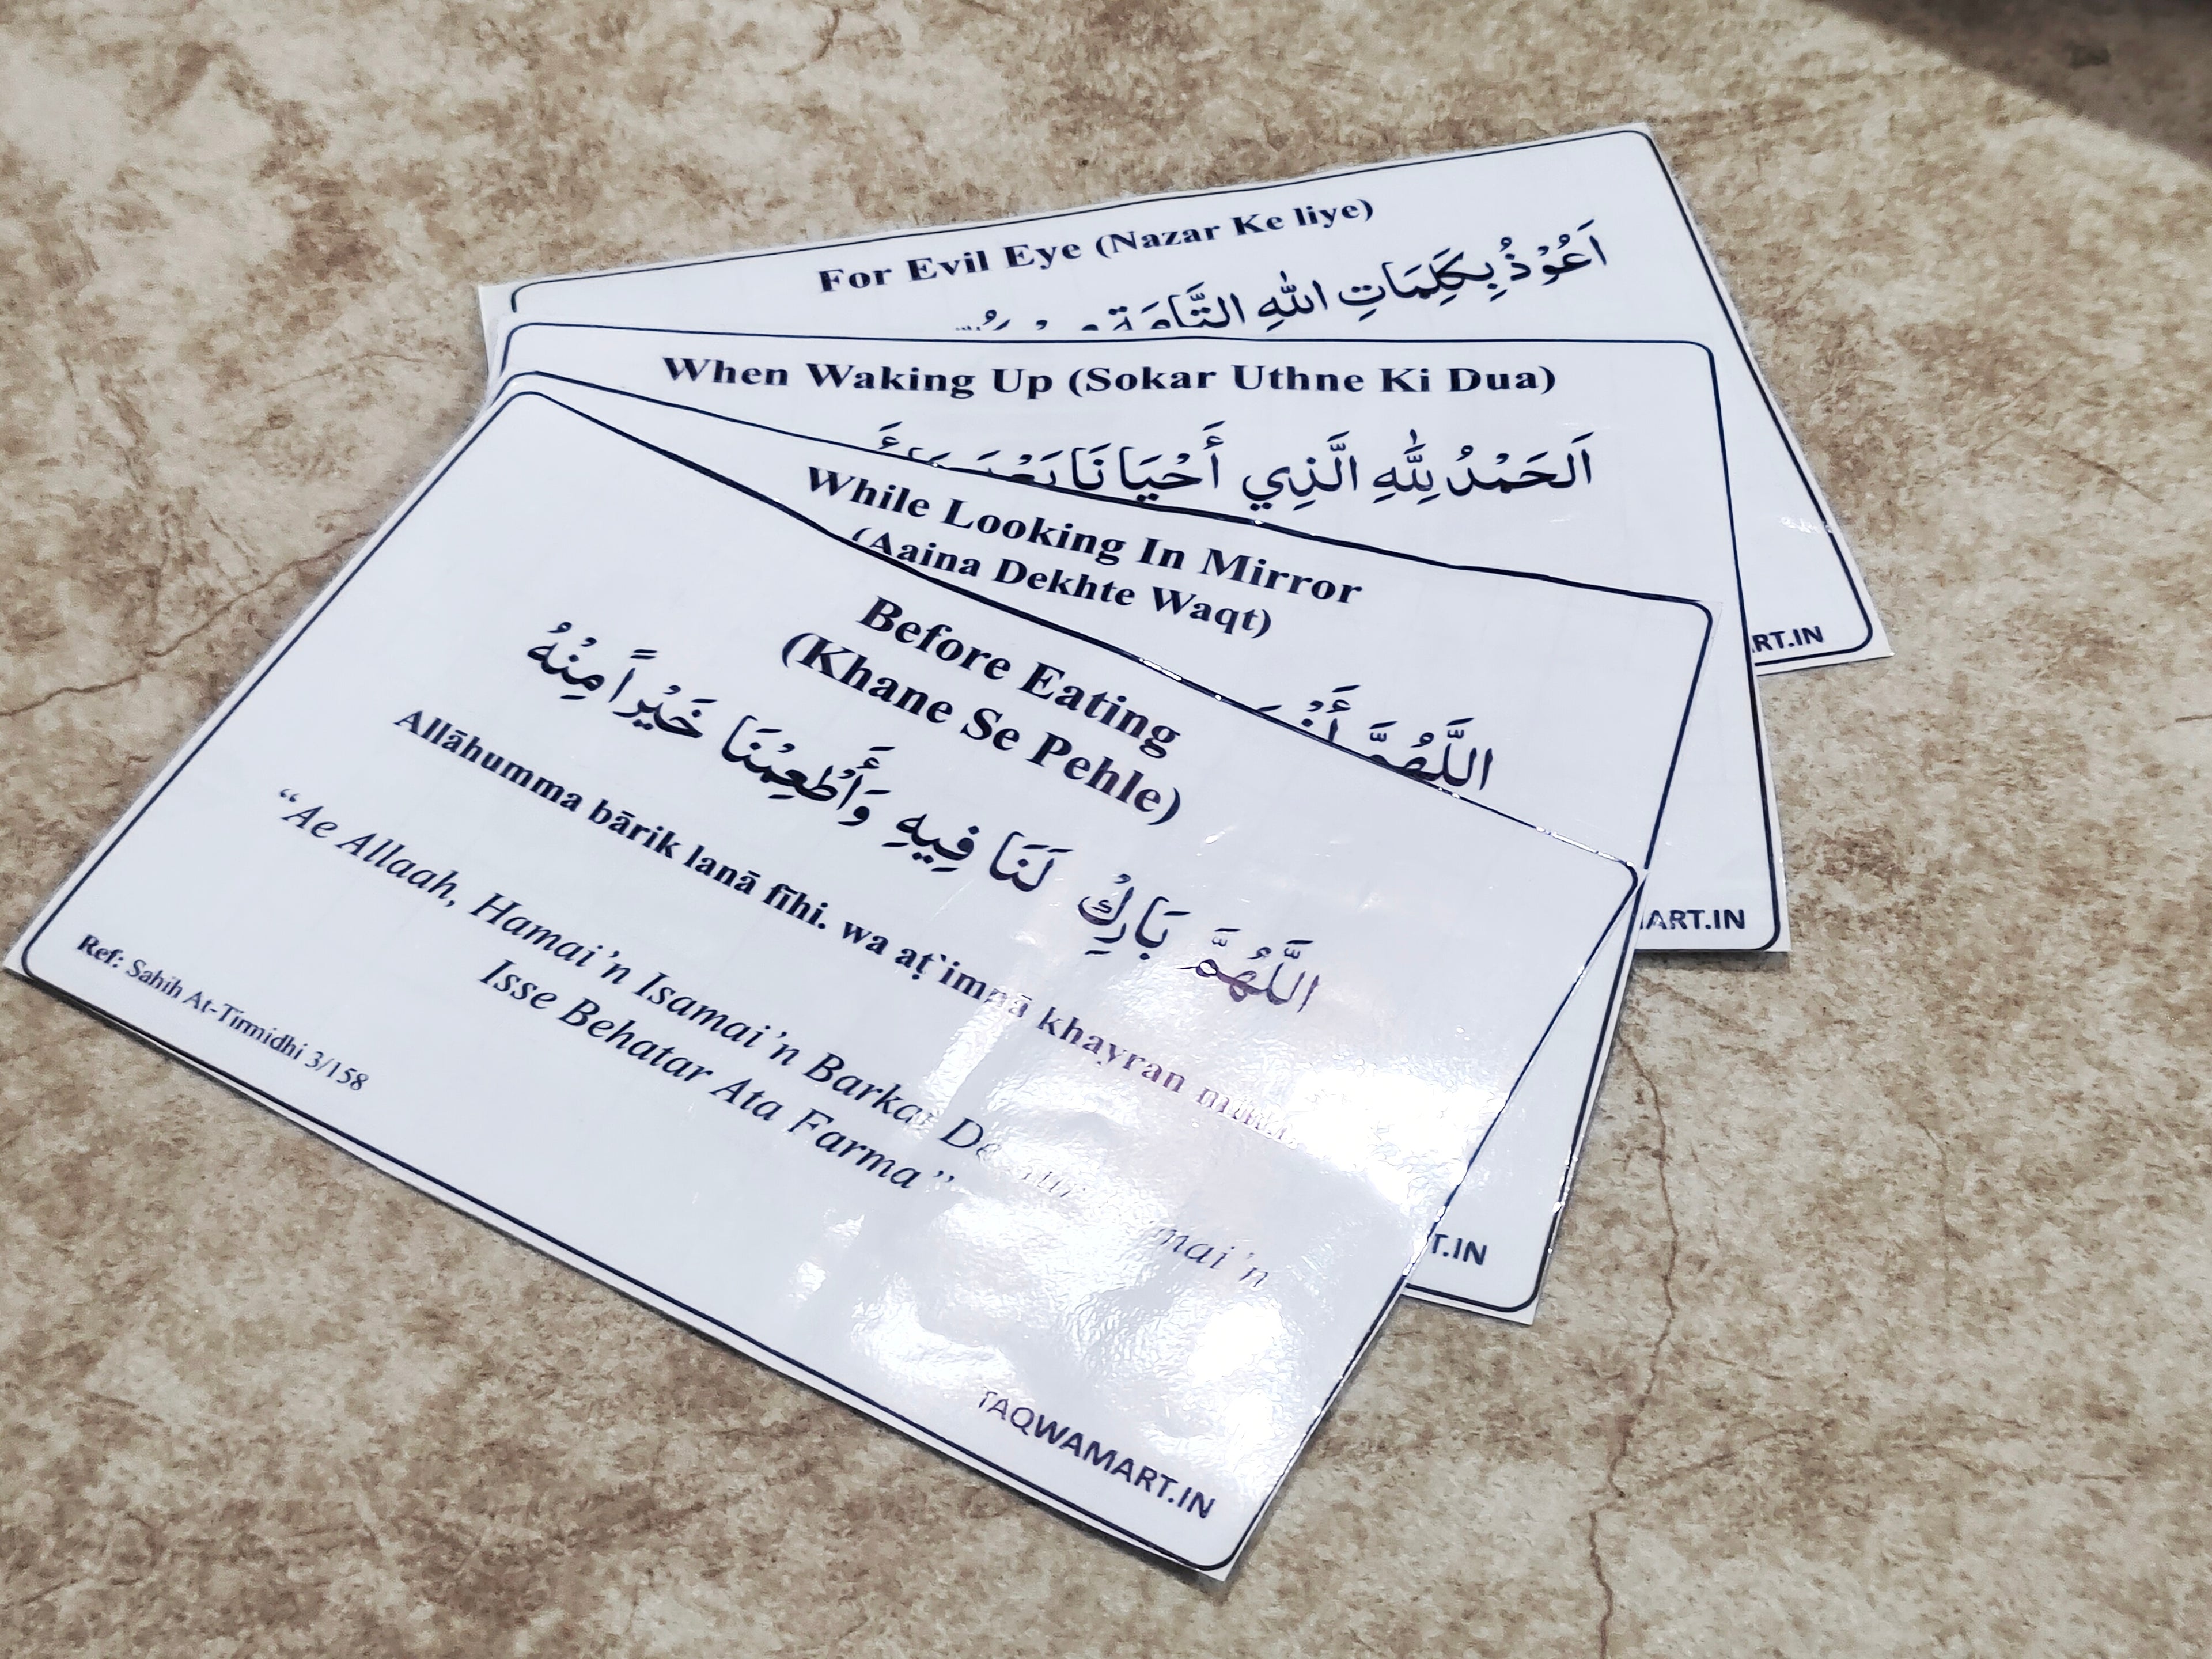 For Evil Eye (Nazar Ke liye)
اَعُوْذُ بِكَلِمَاتِ اللّٰهِ التَّامَّةِ
RT.IN
When Waking Up (Sokar Uthne Ki Dua)
اَلحَمْدُ لِلّٰهِ الَّذِي أَحْيَانَا بَعْدَ
ART.IN
While Looking In Mirror
(Aaina Dekhte Waqt)
اللَّهُمَّ
T.IN
Before Eating
(Khane Se Pehle)
اللَّهُمَّ بَارِكْ لَنَا فِيهِ وَأَطْعِمْنَا خَيْراً مِنْهُ
Allāhumma bārik lanā fīhi. wa aṭ`imnā khayran
“Ae Allaah, Hamai’n Isamai’n Barkat mai’n
Isse Behatar Ata Farma”
Ref: Sahih At-Tirmidhi 3/158
TAQWAMART.IN